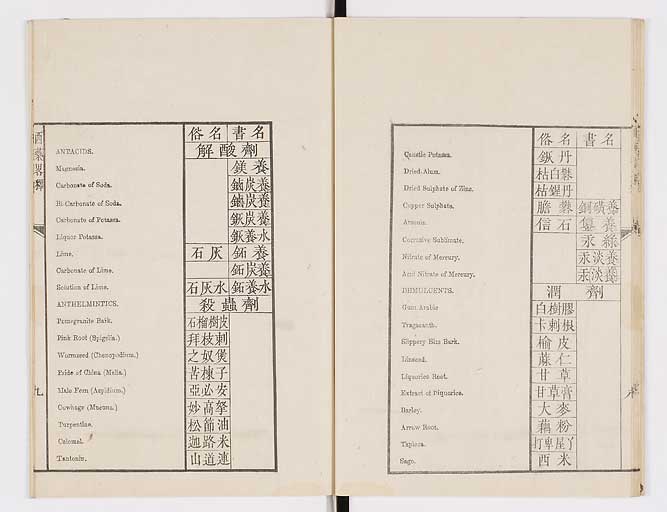 俗名 書名
ANTACIDS. 解酸劑
Magnesia. 鎂養
Carbonate of Soda. 鏀炭養
Bi-Carbonate of Soda. 鏀炭養
Carbonate of Potassa. 鉃炭養
Liquor Potassa. 鉃養水
Lime. 石灰 鉐養
Carbonate of Lime. 鉐炭養
Solution of Lime. 石灰水 鉐養水
ANTHELMINTICS. 殺蟲劑
Pomegranate Bark. 石榴樹皮
Pink Root (Spigelia.) 拜枝剌
Wormseed (Chenopodium.) 之奴煲
Pride of China (Melia.) 苦楝子
Male Fern (Aspidium.) 亞必安
Cowhage (Mucuna.) 妙高拏
Turpentine. 松節油
Calomel. 迦路米
Tantonin. 山道連
九
俗名 書名
Caustic Potassa. 鉃丹
Dried Alum. 枯白礬
Dried Sulphate of Zinc. 枯鋅丹
Copper Sulphate. 膽礬 銅磺養
Arsenic. 信石
Corrosive Sublimate. 汞綠
Nitrate of Mercury. 汞淡養
Acid Nitrate of Mercury. 汞淡養
DEMULCENTS. 潤劑
Gum Arabic 白樹膠
Tragacanth. 卡剌根
Slippery Elm Bark. 榆皮
Linseed. 蔴仁
Liquorice Root. 甘草
Extract of Liquorice. 甘草膏
Barley. 大麥
Arrow Root. 藕粉
Tapioca. 打卑屋丫
Sago. 西米